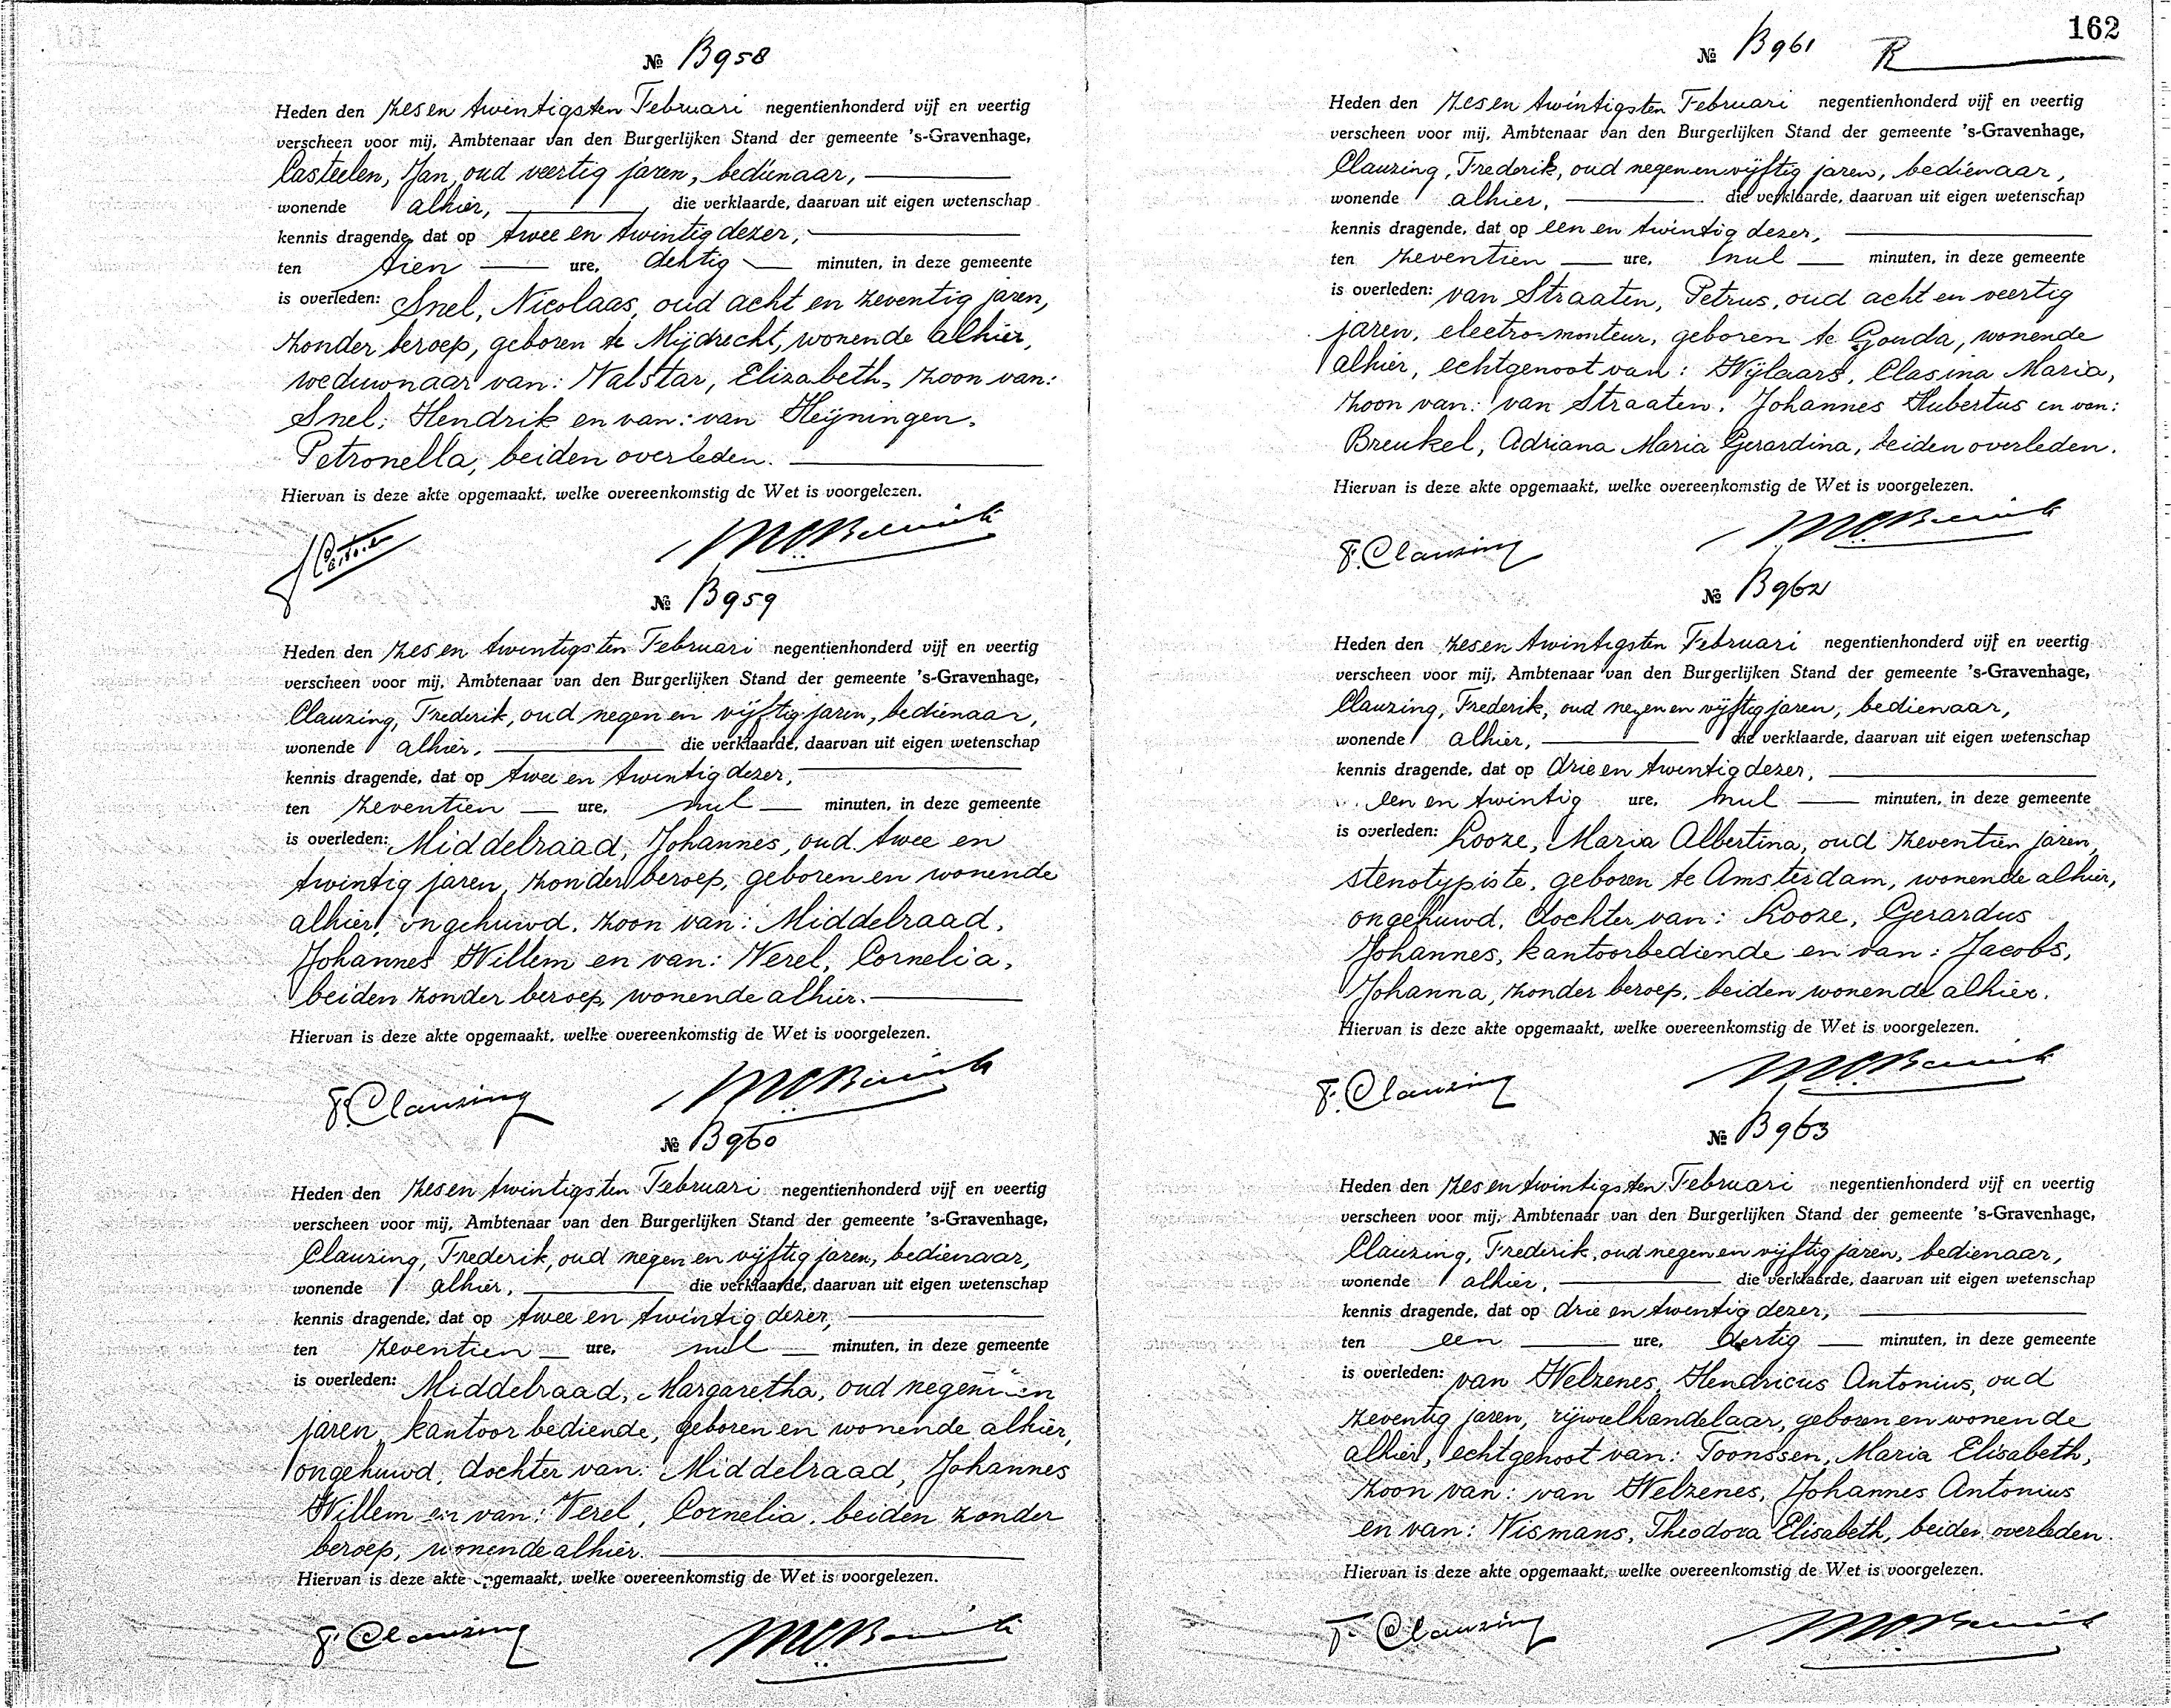 № B958
Heden den zes en twintigsten Februari negentienhonderd vijf en veertig
verscheen voor mij, Ambtenaar van den Burgerlijken Stand der gemeente 's-Gravenhage,
Casteelen, Jan, oud veertig jaren, bedienaar,
wonende alhier, die verklaarde, daarvan uit eigen wetenschap
kennis dragende, dat op twee en twintig dezer,
ten tien ure, dertig minuten, in deze gemeente
is overleden: Snel, Nicolaas, oud acht en zeventig jaren,
zonder beroep, geboren te Mijdrecht, wonende alhier,
weduwnaar van: Valstar, Elizabeth, zoon van:
Snel, Hendrik en van: van Heijningen,
Petronella, beiden overleden.
Hiervan is deze akte opgemaakt, welke overeenkomstig de Wet is voorgelezen.
№ B959
Heden den zes en twintigsten Februari negentienhonderd vijf en veertig
verscheen voor mij, Ambtenaar van den Burgerlijken Stand der gemeente 's-Gravenhage,
Clauzing, Frederik, oud negen en vijftig jaren, bedienaar,
wonende alhier, die verklaarde, daarvan uit eigen wetenschap
kennis dragende, dat op twee en twintig dezer,
ten zeventien ure, nul minuten, in deze gemeente
is overleden: Middelraad, Johannes, oud twee en
twintig jaren, zonder beroep, geboren en wonende
alhier, ongehuwd, zoon van: Middelraad,
Johannes Willem en van: Verel, Cornelia,
beiden zonder beroep, wonende alhier.
Hiervan is deze akte opgemaakt, welke overeenkomstig de Wet is voorgelezen.
F. Clauzing
№ B960
Heden den zes en twintigsten Februari negentienhonderd vijf en veertig
verscheen voor mij, Ambtenaar van den Burgerlijken Stand der gemeente 's-Gravenhage,
Clauzing, Frederik, oud negen en vijftig jaren, bedienaar,
wonende alhier, die verklaarde, daarvan uit eigen wetenschap
kennis dragende, dat op twee en twintig dezer,
ten zeventien ure, nul minuten, in deze gemeente
is overleden: Middelraad, Margaretha, oud negentien
jaren, kantoorbediende, geboren en wonende alhier,
ongehuwd, dochter van: Middelraad, Johannes
Willem en van: Verel, Cornelia, beiden zonder
beroep, wonende alhier.
Hiervan is deze akte opgemaakt, welke overeenkomstig de Wet is voorgelezen.
F. Clauzing
162
№ B961 R
Heden den zes en twintigsten Februari negentienhonderd vijf en veertig
verscheen voor mij, Ambtenaar van den Burgerlijken Stand der gemeente 's-Gravenhage,
Clauzing, Frederik, oud negen en vijftig jaren, bedienaar,
wonende alhier, die verklaarde, daarvan uit eigen wetenschap
kennis dragende, dat op een en twintig dezer,
ten zeventien ure, nul minuten, in deze gemeente
is overleden: van Straaten, Petrus, oud acht en veertig
jaren, electro-monteur, geboren te Gouda, wonende
alhier, echtgenoot van: Wijlaars, Clasina Maria,
zoon van: van Straaten, Johannes Hubertus en van:
Breukel, Adriana Maria Gerardina, beiden overleden.
Hiervan is deze akte opgemaakt, welke overeenkomstig de Wet is voorgelezen.
F. Clauzing
№ B962
Heden den zes en twintigsten Februari negentienhonderd vijf en veertig
verscheen voor mij, Ambtenaar van den Burgerlijken Stand der gemeente 's-Gravenhage,
Clauzing, Frederik, oud negen en vijftig jaren, bedienaar,
wonende alhier, die verklaarde, daarvan uit eigen wetenschap
kennis dragende, dat op drie en twintig dezer,
een en twintig ure, nul minuten, in deze gemeente
is overleden: Kooze, Maria Albertina, oud zeventien jaren,
stenotypiste, geboren te Amsterdam, wonende alhier,
ongehuwd, dochter van: Kooze, Gerardus
Johannes, kantoorbediende en van: Jacobs,
Johanna, zonder beroep, beiden wonende alhier.
Hiervan is deze akte opgemaakt, welke overeenkomstig de Wet is voorgelezen.
F. Clauzing
№ B963
Heden den zes en twintigsten Februari negentienhonderd vijf en veertig
verscheen voor mij, Ambtenaar van den Burgerlijken Stand der gemeente 's-Gravenhage,
Clauzing, Frederik, oud negen en vijftig jaren, bedienaar,
wonende alhier, die verklaarde, daarvan uit eigen wetenschap
kennis dragende, dat op drie en twintig dezer,
ten een ure, dertig minuten, in deze gemeente
is overleden: van Welzenes, Hendricus Antonius, oud
zeventig jaren, rijwielhandelaar, geboren en wonende
alhier, echtgenoot van: Toonssen, Maria Elisabeth,
zoon van: van Welzenes, Johannes Antonius
en van: Vismans, Theodora Elisabeth, beiden overleden.
Hiervan is deze akte opgemaakt, welke overeenkomstig de Wet is voorgelezen.
F. Clauzing